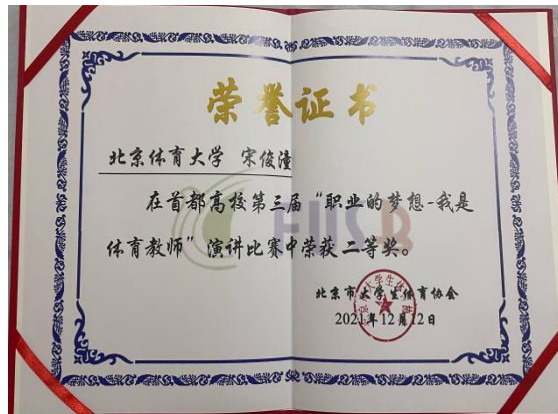 荣誉证书
北京体育大学 宋俊潼
在首都高校第三届“职业的梦想-我是
体育教师”演讲比赛中荣获二等奖。
北京市大学生体育协会
2021年12月12日